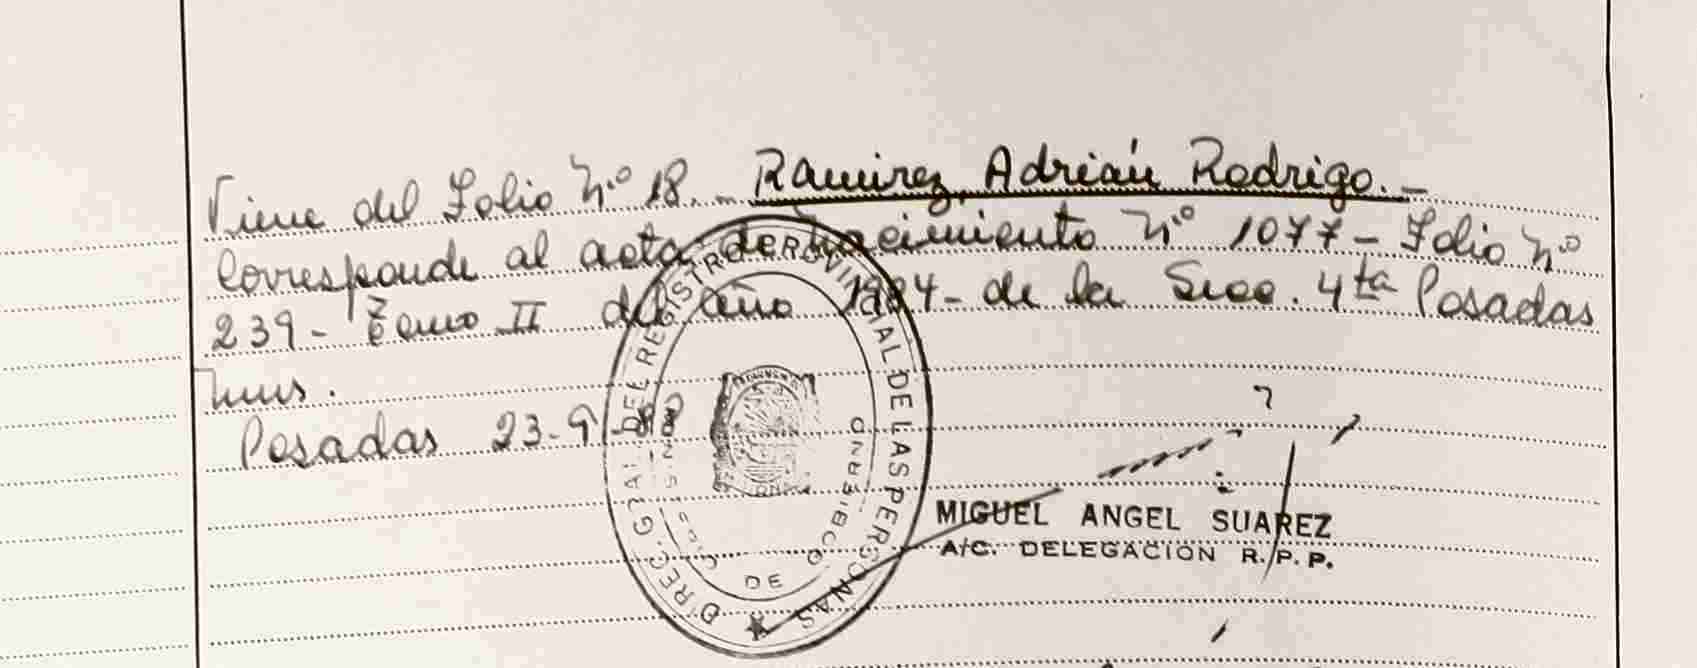 Viene del Folio N° 18. - Ramirez, Adrián Rodrigo. -
Corresponde al acta de nacimiento N° 1077 - Folio N°
239 - Tomo II del año 1984 - de la Secc. 4ta Posadas
Mns.
Posadas 23-9-
DIREC. GRAL. DEL REGISTRO PROVINCIAL DE LAS PERSONAS
DE
GOBIERNO
MIGUEL ANGEL SUAREZ
A/C. DELEGACION R.P.P.